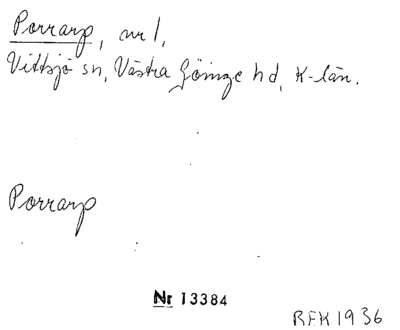 Porrarp, nr 1,
Vittsjö sn, Västra Göinge hd, K-län.
Porrarp
Nr 13384
REK 1936